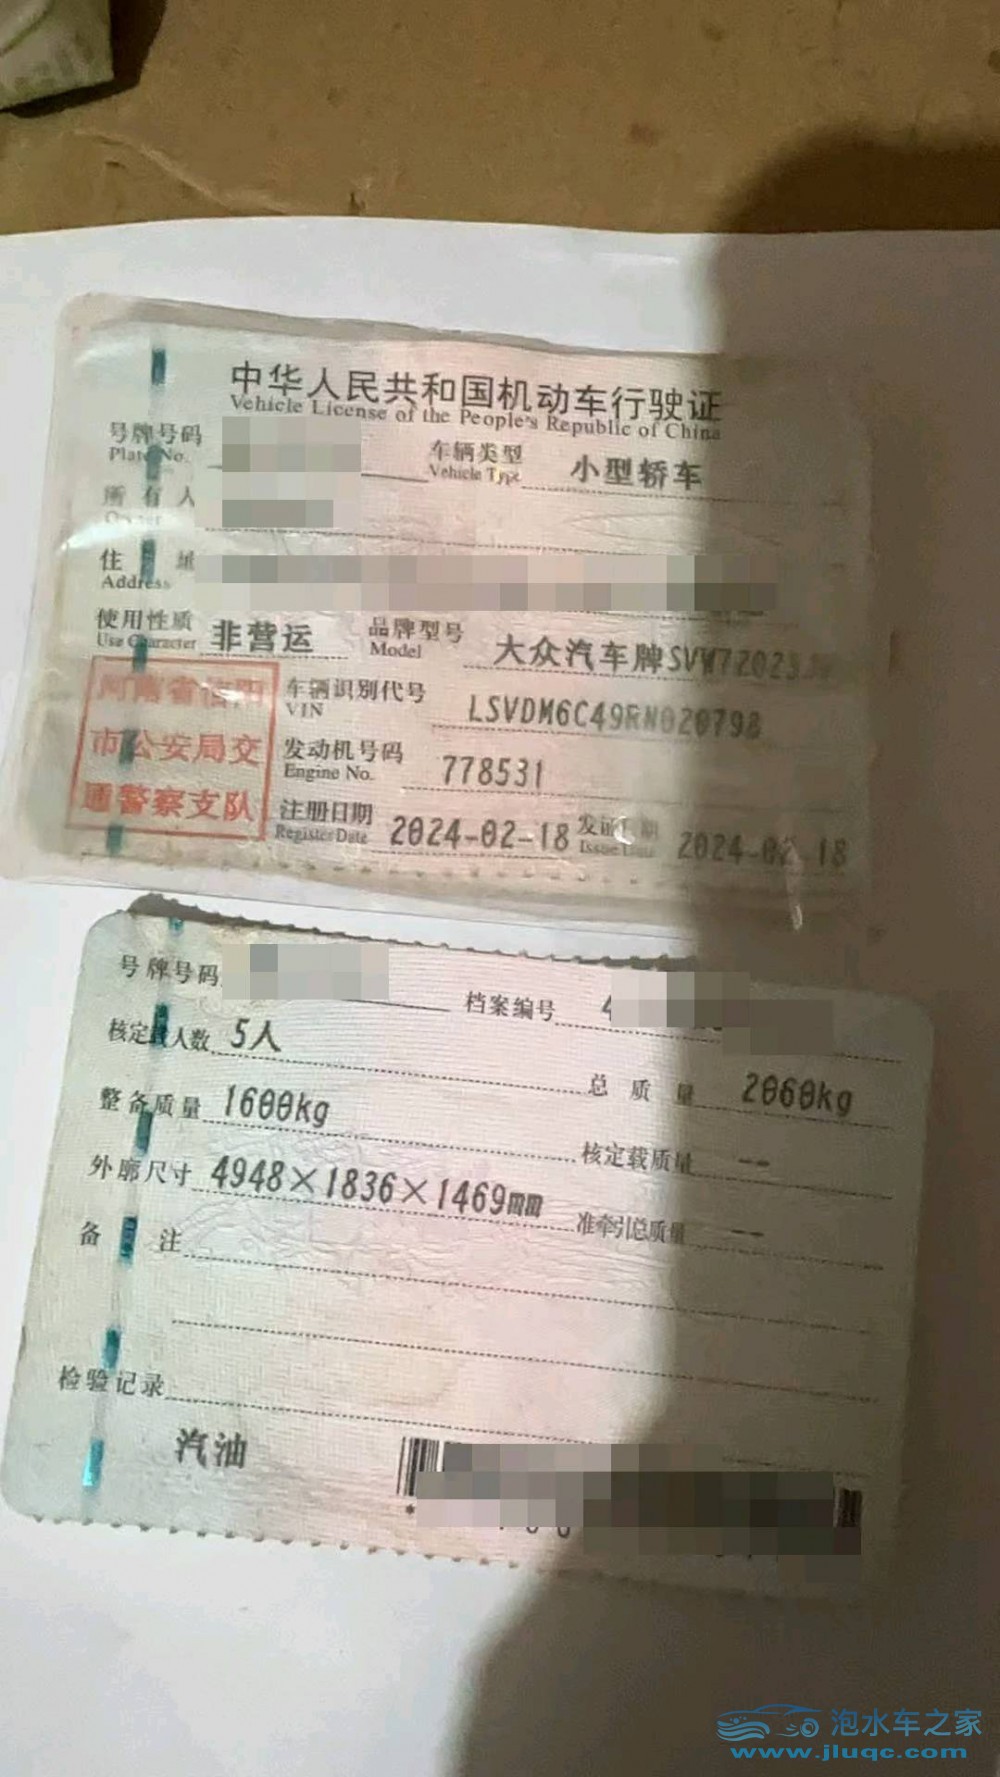 中华人民共和国机动车行驶证
Vehicle License of the People's Republic of China
号牌号码
Plate No.
车辆类型 小型轿车
Vehicle Type
所有人
Owner
住 址
Address
使用性质 非营运
Use Character
品牌型号 大众汽车牌SVW72023
Model
河南省信阳
市公安局交
通警察支队
车辆识别代号 LSVDM6C49RN020798
VIN
发动机号码 778531
Engine No.
注册日期 2024-02-18
Register Date
发证日期 2024-02-18
Issue Date
号牌号码
档案编号 4
核定载人数 5人
总质量 2060kg
整备质量 1600kg
核定载质量 --
外廓尺寸 4948×1836×1469mm
准牵引总质量 --
备 注
检验记录
汽油
*
泡水车之家
www.jluqc.com